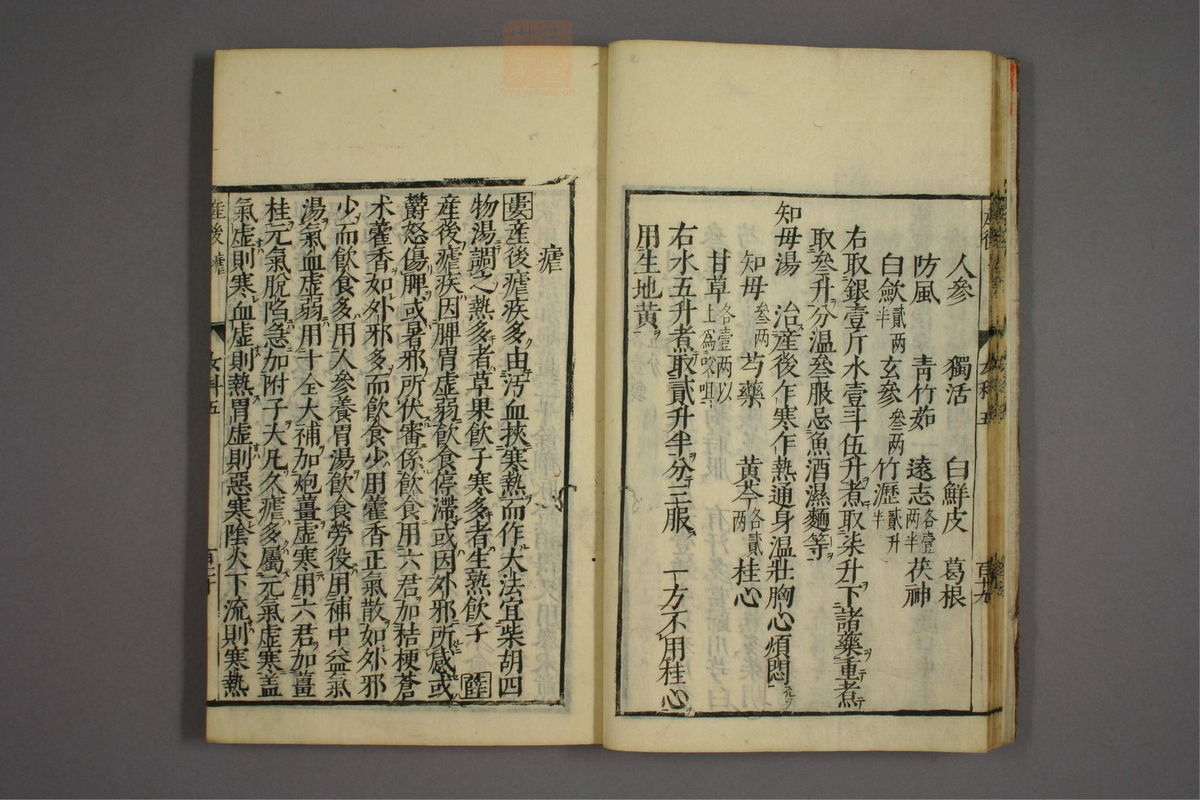 人參　獨活　白鮮皮　葛根
防風　青竹茹　遠志各壹两半　茯神
白歛貳两半　玄參叁两　竹瀝貳升半
右取銀壹斤水壹斗伍升煮取柒升下諸藥重煮
取叁升分温叁服忌魚酒濕麵等
知母湯　治産後乍寒乍熱通身温壮胸心煩悶
知母叁两　芍藥　黄芩各貳两　桂心
甘草各壹两以上爲㕮咀
右水五升煮取貳升半分三服　一方不用桂心
用生地黄
産後
女科五
百十九
瘧
婁産後瘧疾多由汚血挾寒熱而作大法宜柴胡四
物湯調之熱多者草果飲子寒多者生熟飲子
産後瘧疾因脾胃虚弱飲食停滯或因外邪所感或
欝怒傷脾或暑邪所伏審係飲食用六君加桔梗蒼
术藿香如外邪多而飲食少用藿香正氣散如外邪
少而飲食多用人參養胃湯飲食勞役用補中益氣
湯氣血虚弱用十全大補加炮薑虚寒用六君加薑
桂元氣脫陷急加附子大凡久瘧多屬元氣虚寒盖
氣虚則寒血虚則熱胃虚則惡寒陰火下流則寒熱
産後　瘧
女科五